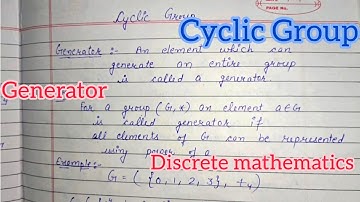 PAGE NO.
Cyclic Group
Cyclic Group
Generator :- An element which can
generate an entire group
is called a generator.
Generator
For a group (G,*) an element a∈G
is called generator if
all elements of G can be represented
using power of a
Discrete mathematics
Example:-
G = ( {0, 1, 2, 3}, +₄)